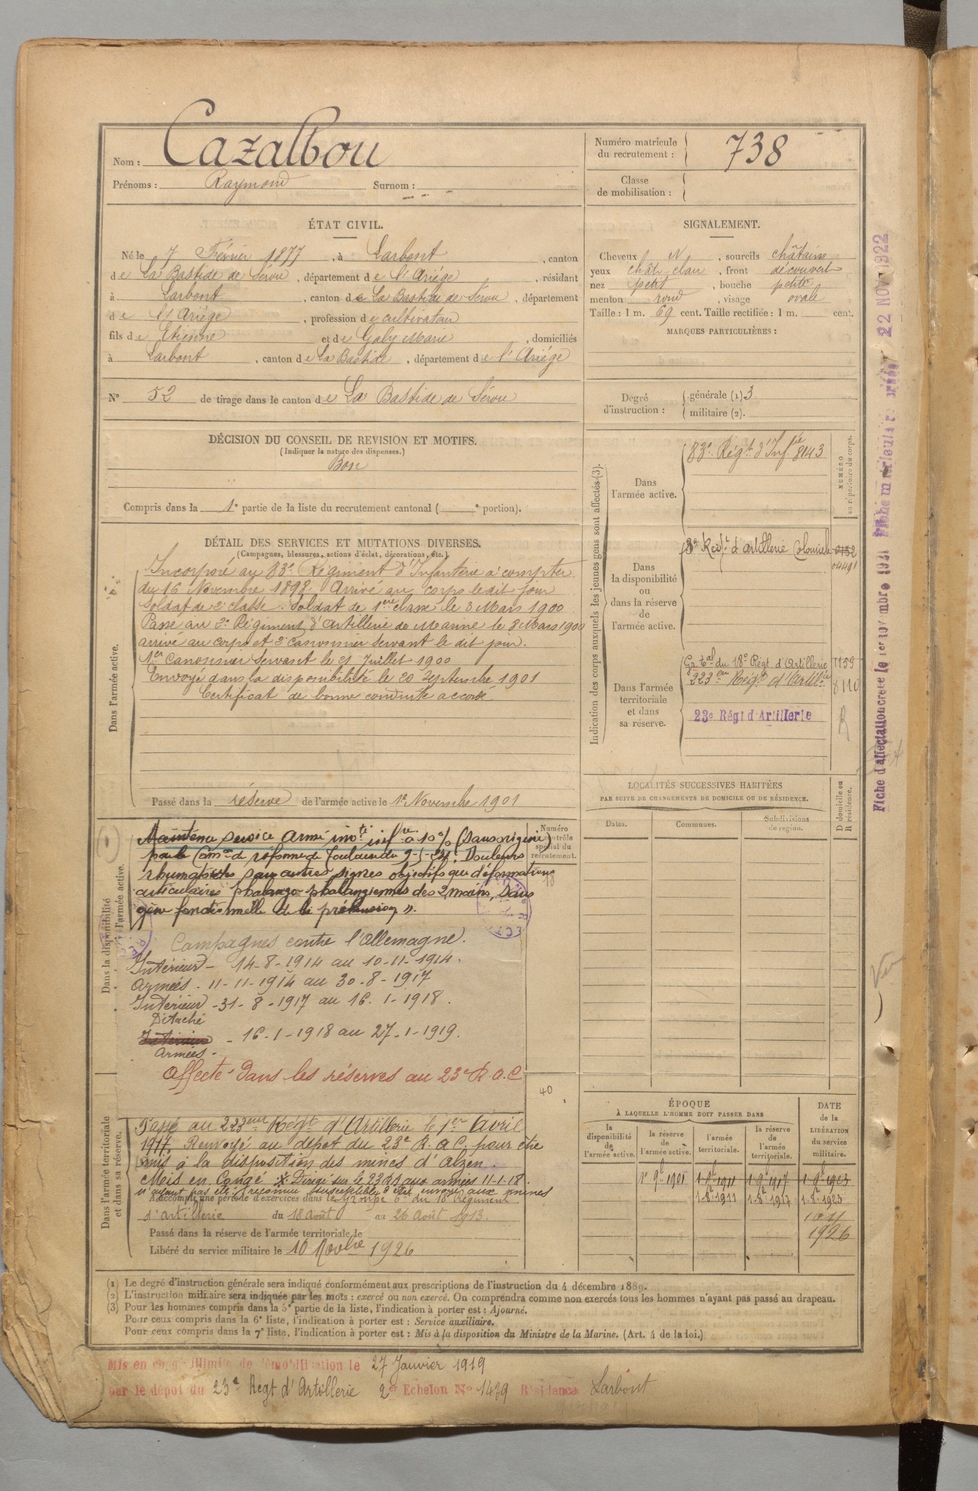 Nom : Cazalbou
Prénoms : Raymond Surnom :
Numéro matricule du recrutement : 738
Classe de mobilisation :
ÉTAT CIVIL.
Né le 7 Février 1877, à Larbont, canton
de La Bastide de Sérou, département de l'Ariége, résidant
à Larbont, canton de La Bastide de Sérou, département
de l'Ariége, profession de cultivateur
fils de Etienne et de Galy Marie, domiciliés
à Larbont, canton de La Bastide, département de l'Ariége
N° 52 de tirage dans le canton de La Bastide de Sérou
SIGNALEMENT.
Cheveux N, sourcils châtains
yeux chât. clair, front découvert
nez petit, bouche petite
menton rond, visage ovale
Taille : 1 m. 69 cent. Taille rectifiée : 1 m. cent.
MARQUES PARTICULIÈRES :
Degré d'instruction : générale (1) 3
militaire (2).
DÉCISION DU CONSEIL DE REVISION ET MOTIFS.
(Indiquer la nature des dispenses.)
Bon
Compris dans la 1e partie de la liste du recrutement cantonal ( e portion).
DÉTAIL DES SERVICES ET MUTATIONS DIVERSES.
(Campagnes, blessures, actions d'éclat, décorations, etc.)
Dans l'armée active.
Incorporé au 83e Régiment d'Infanterie à compter
du 16 Novembre 1898. Arrivé au corps le dit jour
Soldat de 2e classe. Soldat de 1ere classe le 3 Mars 1900
Passé au Régiment d'Artillerie de Marine le 8 Mars 1900
arrivé au corps et 2e Canonnier servant le dit jour.
1er Canonnier Servant le 21 Juillet 1900
Envoyé dans la disponibilité le 20 Septembre 1901
Certificat de bonne conduite accordé
Passé dans la réserve de l'armée active le 1er Novembre 1901
Indication des corps auxquels les jeunes gens sont affectés (3).
NUMÉRO au répertoire du corps.
Dans l'armée active.
83e Régt d'Infie 8143
Dans la disponibilité ou dans la réserve de l'armée active.
8e Régt d'artillerie Coloniale
Dans l'armée territoriale et dans sa réserve.
Gr. Tal du 18e Régt d'Artillerie 1159
223e Régt d'Artillie
23e Régt d'Artillerie
LOCALITÉS SUCCESSIVES HABITÉES
PAR SUITE DE CHANGEMENTS DE DOMICILE OU DE RÉSIDENCE.
Dates. Communes. Subdivisions de région. D domicile ou R résidence.
Dans la disponibilité
l'armée active.
Numéro contrôle spécial du recrutement.
Maintenu service armé invté infre à 10% (Sans origine)
par la Comon de réforme de Toulouse du
rhumatoïdes sans autres signes objectifs que déformations
articulaires phalango-phalangiennes des 2 mains, sans
gêne fonctionnelle de la préhension ».
Campagnes contre l'Allemagne.
Intérieur - 14-8-1914 au 10-11-1914.
Armées - 11-11-1914 au 30-8-1917
Intérieur - 31-8-1917 au 16-1-1918.
Détaché
Armées - 16-1-1918 au 27-1-1919.
Affecté dans les réserves au 23e R.A.C
40
Dans l'armée territoriale et dans sa réserve.
Passé au 223eme Régt d'Artillerie le 1er Avril
1917. Renvoyé au dépôt du 23e R.A.C, pour être
mis à la disposition des mines d'Alzen.
Mis en Congé * Dirigé sur le 23e aux armées 11-1-18.
n'ayant pas été reconnu susceptible d'être envoyé aux mines
A accompli une période d'exercices dans le Groupe du 18e Régiment
d'artillerie du 18 août au 26 août 1913.
Passé dans la réserve de l'armée territoriale le
Libéré du service militaire le 10 Novbre 1926
ÉPOQUE
À LAQUELLE L'HOMME DOIT PASSER DANS
la disponibilité de l'armée active. la réserve de l'armée active. l'armée territoriale. la réserve de l'armée territoriale.
DATE de la LIBÉRATION du service militaire.
1926
(1) Le degré d'instruction générale sera indiqué conformément aux prescriptions de l'instruction du 4 décembre 1889.
(2) L'instruction militaire sera indiquée par les mots : exercé ou non exercé. On comprendra comme non exercés tous les hommes n'ayant pas passé au drapeau.
(3) Pour les hommes compris dans la 5e partie de la liste, l'indication à porter est : Ajourné.
Pour ceux compris dans la 6e liste, l'indication à porter est : Service auxiliaire.
Pour ceux compris dans la 7e liste, l'indication à porter est : Mis à la disposition du Ministre de la Marine. (Art. 4 de la loi.)
Mis en congé illimité de démobilisation le 27 Janvier 1919
par le dépôt du 23e Régt d'Artillerie 2e Echelon No 1439 Résidence Larbont
Fiche d'affectation créée le 1er novembre 1921
22 NOV 1922